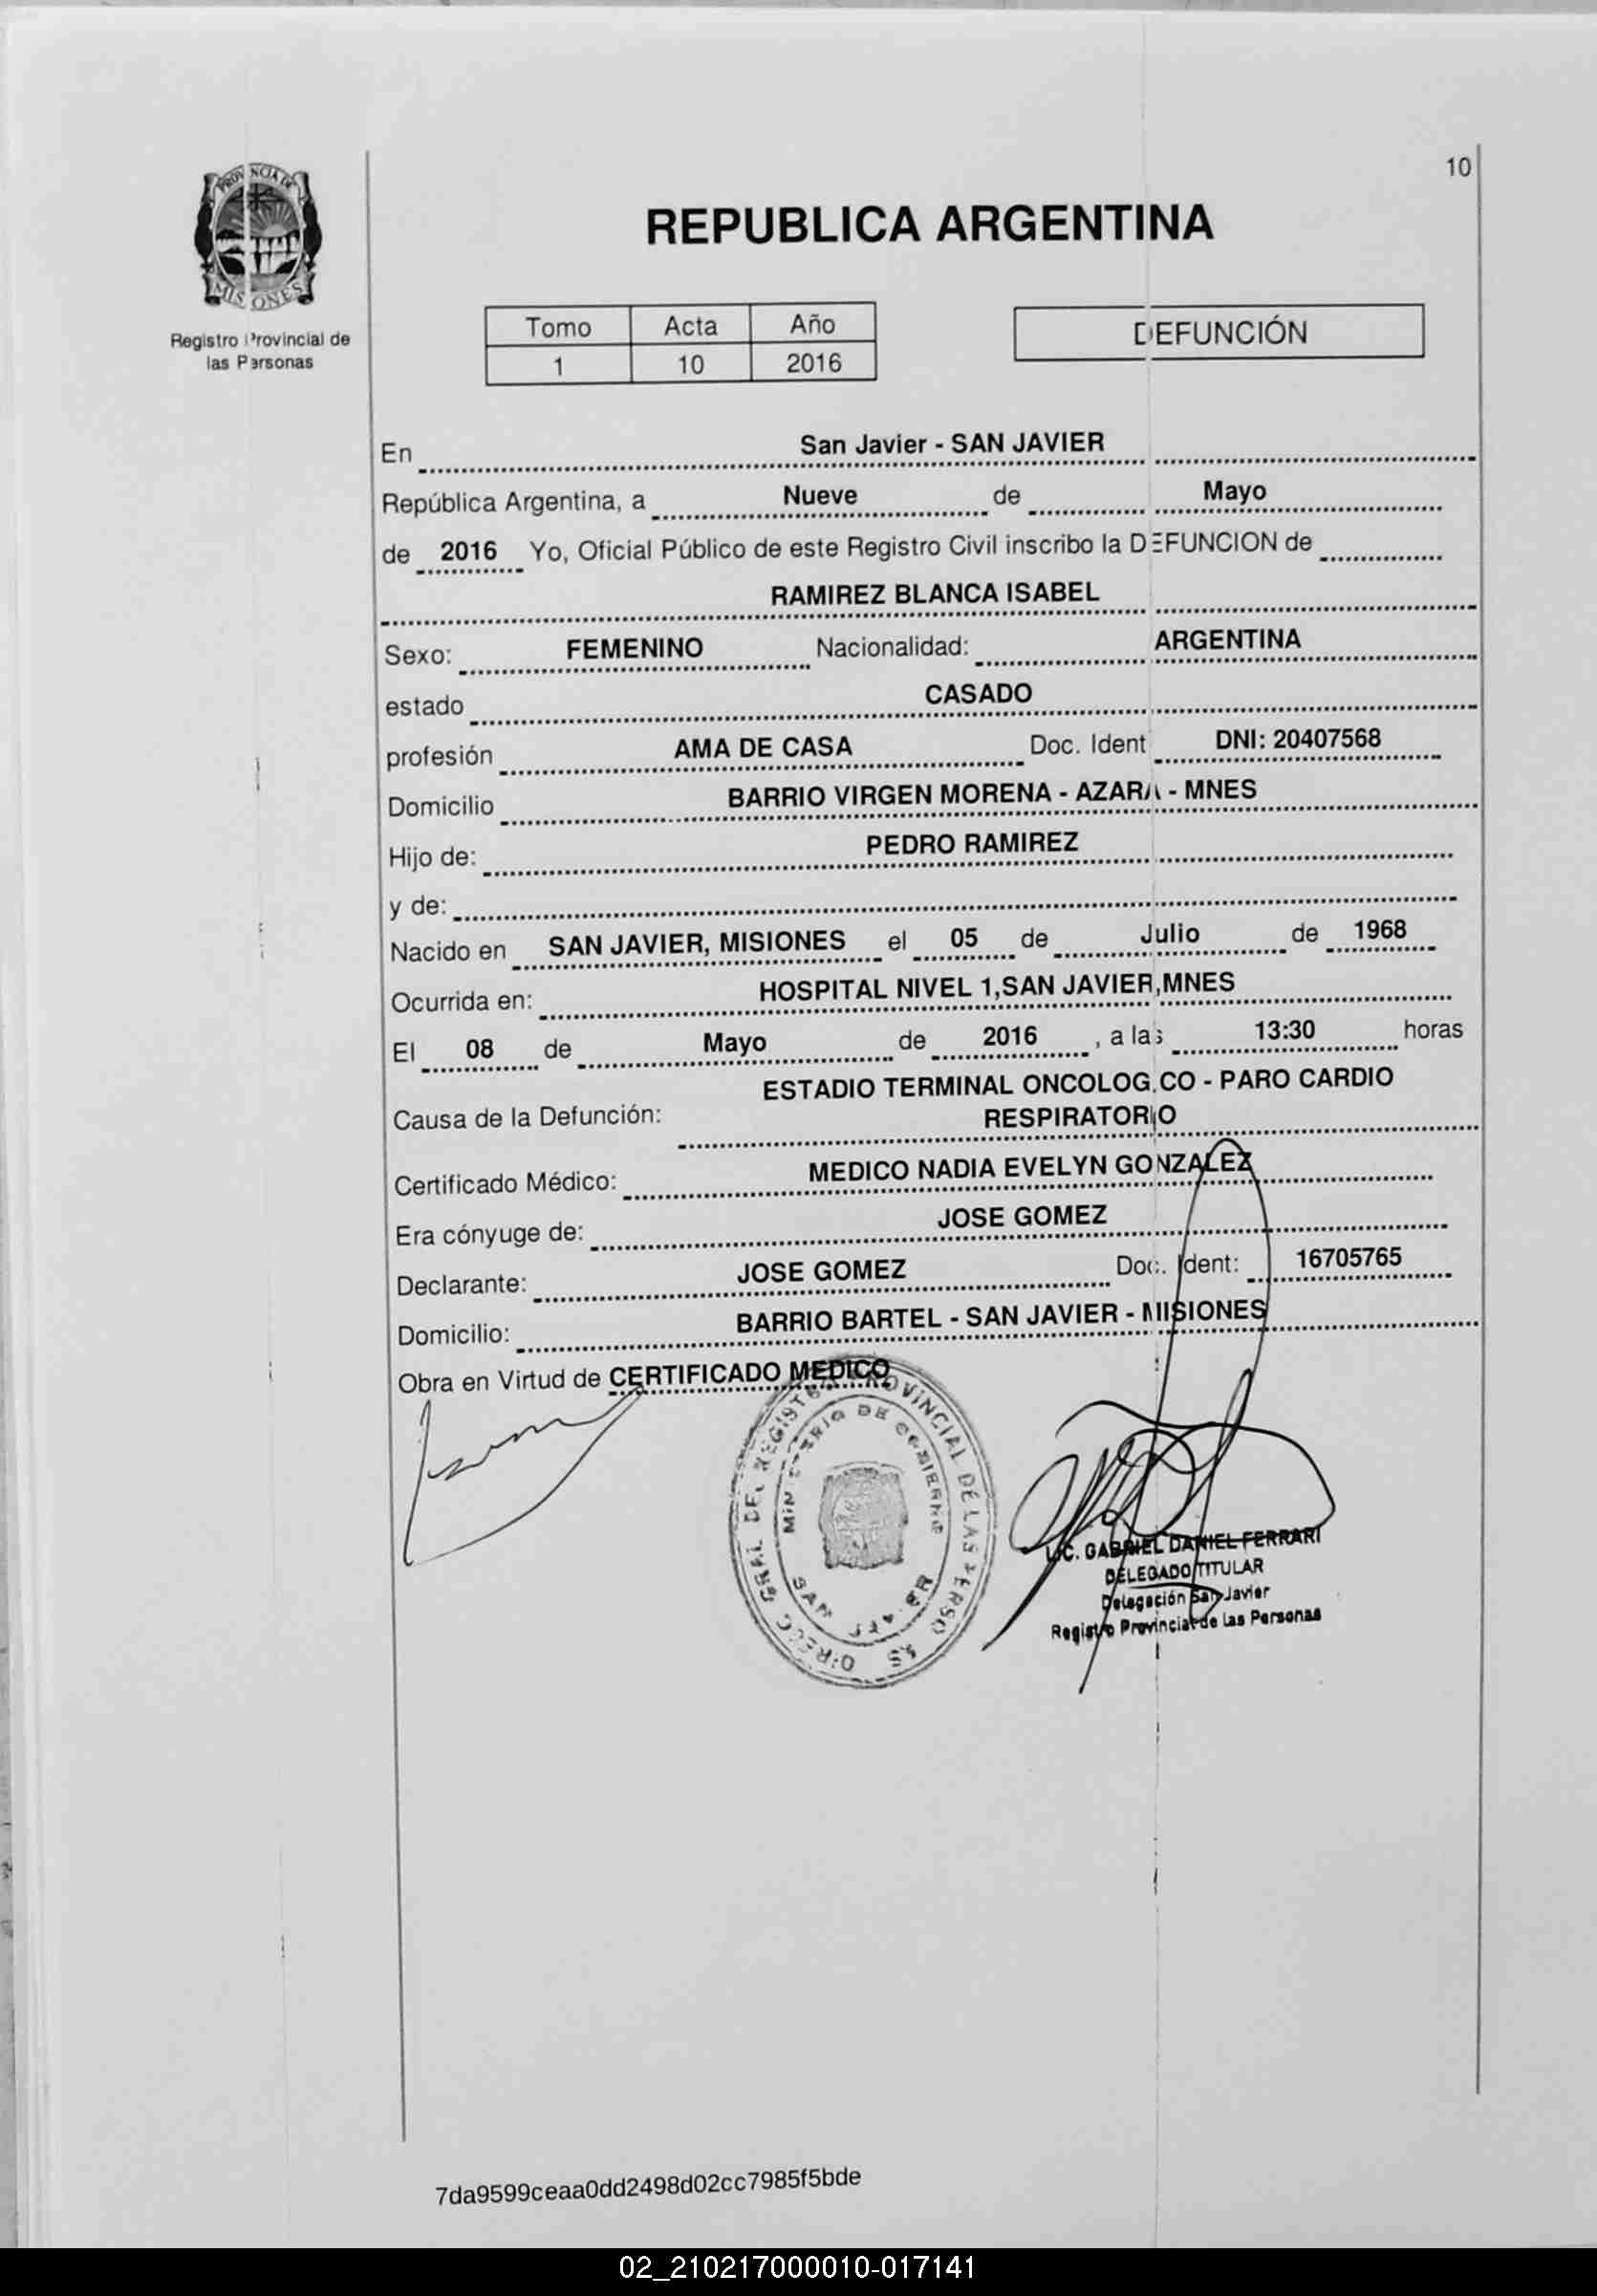 10
PROVINCIA DE
MISIONES
Registro Provincial de
las Personas
REPUBLICA ARGENTINA
Tomo Acta Año
1 10 2016
DEFUNCIÓN
En San Javier - SAN JAVIER
República Argentina, a Nueve de Mayo
de 2016 Yo, Oficial Público de este Registro Civil inscribo la DEFUNCION de
RAMIREZ BLANCA ISABEL
Sexo: FEMENINO Nacionalidad: ARGENTINA
estado CASADO
profesión AMA DE CASA Doc. Ident DNI: 20407568
Domicilio BARRIO VIRGEN MORENA - AZARA - MNES
Hijo de: PEDRO RAMIREZ
y de:
Nacido en SAN JAVIER, MISIONES el 05 de Julio de 1968
Ocurrida en: HOSPITAL NIVEL 1,SAN JAVIER,MNES
El 08 de Mayo de 2016 , a las 13:30 horas
Causa de la Defunción: ESTADIO TERMINAL ONCOLOGICO - PARO CARDIO
RESPIRATORIO
Certificado Médico: MEDICO NADIA EVELYN GONZALEZ
Era cónyuge de: JOSE GOMEZ
Declarante: JOSE GOMEZ Doc. Ident: 16705765
Domicilio: BARRIO BARTEL - SAN JAVIER - MISIONES
Obra en Virtud de CERTIFICADO MEDICO
DEL REGISTRO PROVINCIAL DE LAS
MINISTERIO DE GOBIERNO
SAN
LIC. GABRIEL DANIEL FERRARI
DELEGADO TITULAR
Delegación San Javier
Registro Provincial de Las Personas
7da9599ceaa0dd2498d02cc7985f5bde
02_210217000010-017141